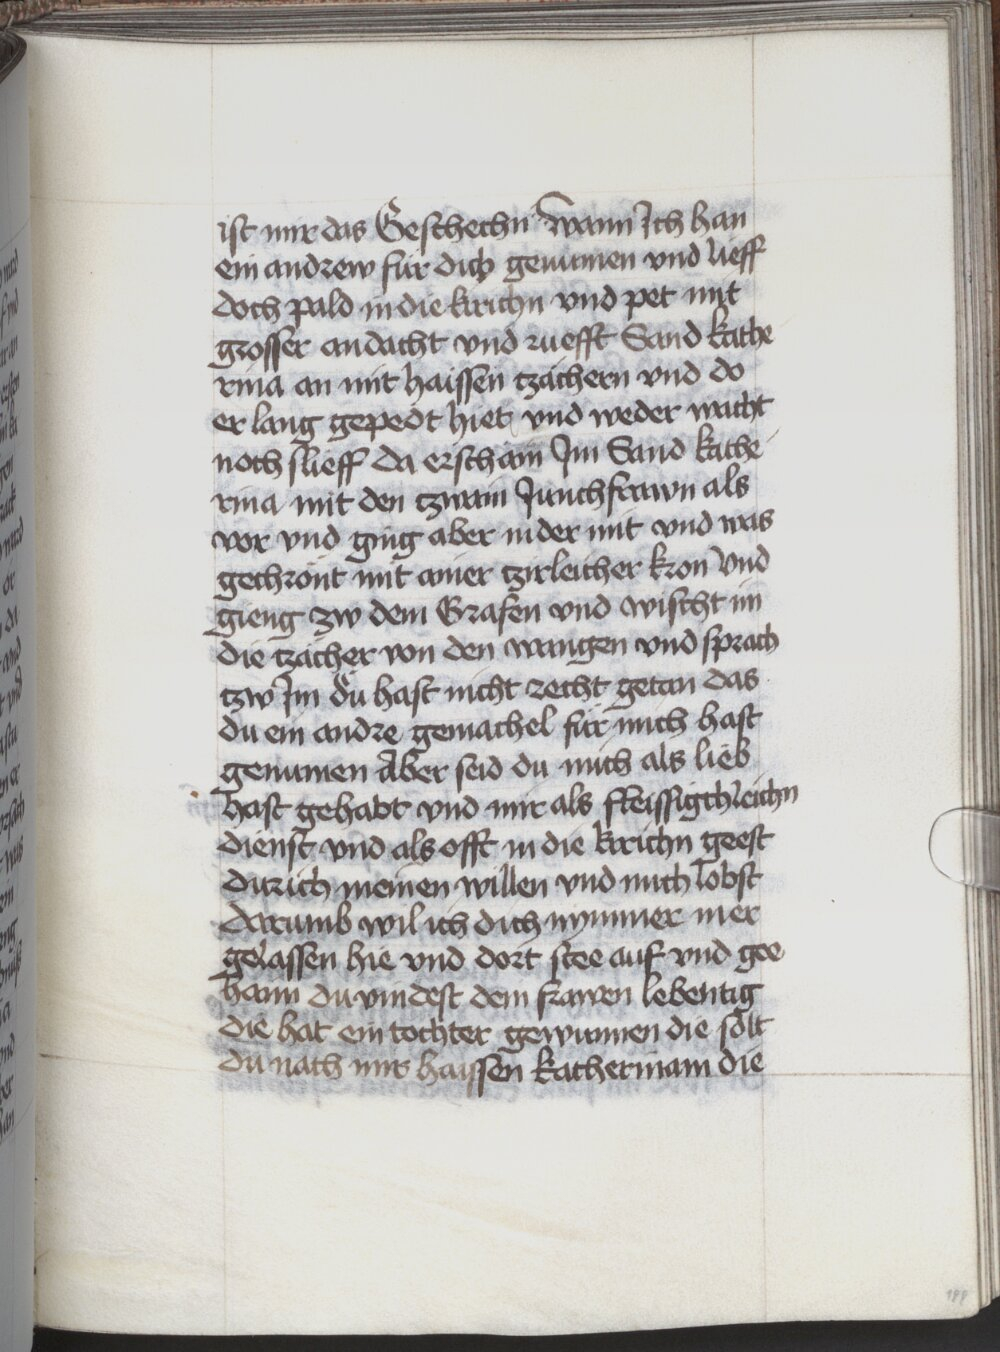 ist mir das Geschechn wann Ich han
ein andrew für dich genumen vnd lieff
doch pald in die kirichn vnd pet mit
grosser andacht vnd ruefft Sand kathe
rina an mit haissen tzächern vnd do
er lang gepedt hiet vnd weder wacht
noch slieff da erschain Im Sand kathe
rina mit den tzwain Junchfrawn als
vor vnd ging aber nider mit vnd was
gechrönt mit ainer tzirleicher kron vnd
gieng zw dem Grafen vnd wischt im
die tzächer von den wangen vnd sprach
tzw Im du hast nicht recht getan das
du ein andre gemachel für mich hast
genumen Aber seid du mich als lieb
hast gehabt vnd mir als fleissigchleichn
dienst vnd als offt in die kirichn geest
durich meinen willen vnd mich lobst
darumb wil ich dich nymmer mer
gelassen hie vnd dort stee auf vnd gee
haym du vindest dein frawen lebentig
die hat ein tochter gewunnen die solt
du nach mir haissen katherinam die
188